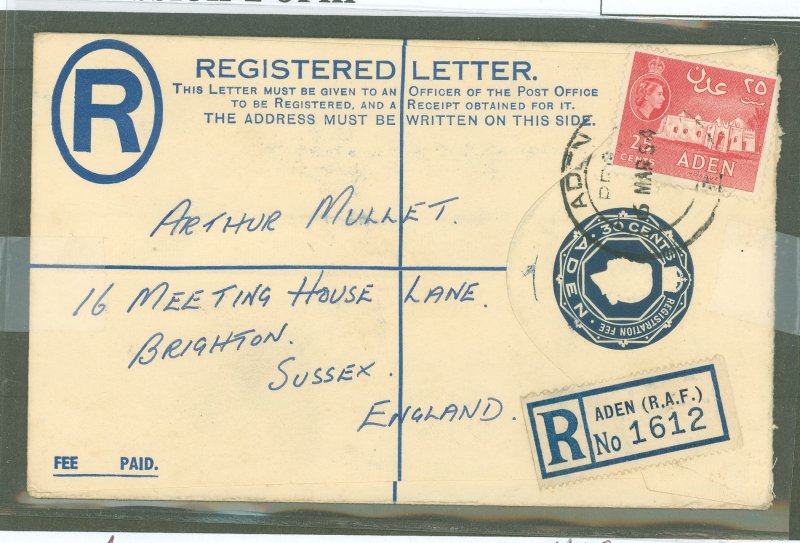 R
REGISTERED LETTER.
THIS LETTER MUST BE GIVEN TO AN OFFICER OF THE POST OFFICE
TO BE REGISTERED, AND A RECEIPT OBTAINED FOR IT.
THE ADDRESS MUST BE WRITTEN ON THIS SIDE.
عدن ٢٥
25
CENTS ADEN
ADEN
REG
MAR 54
30 CENTS
ADEN
REGISTRATION FEE
ARTHUR MULLET.
16 MEETING HOUSE LANE.
BRIGHTON.
SUSSEX.
ENGLAND.
R ADEN (R.A.F.)
No 1612
FEE PAID.